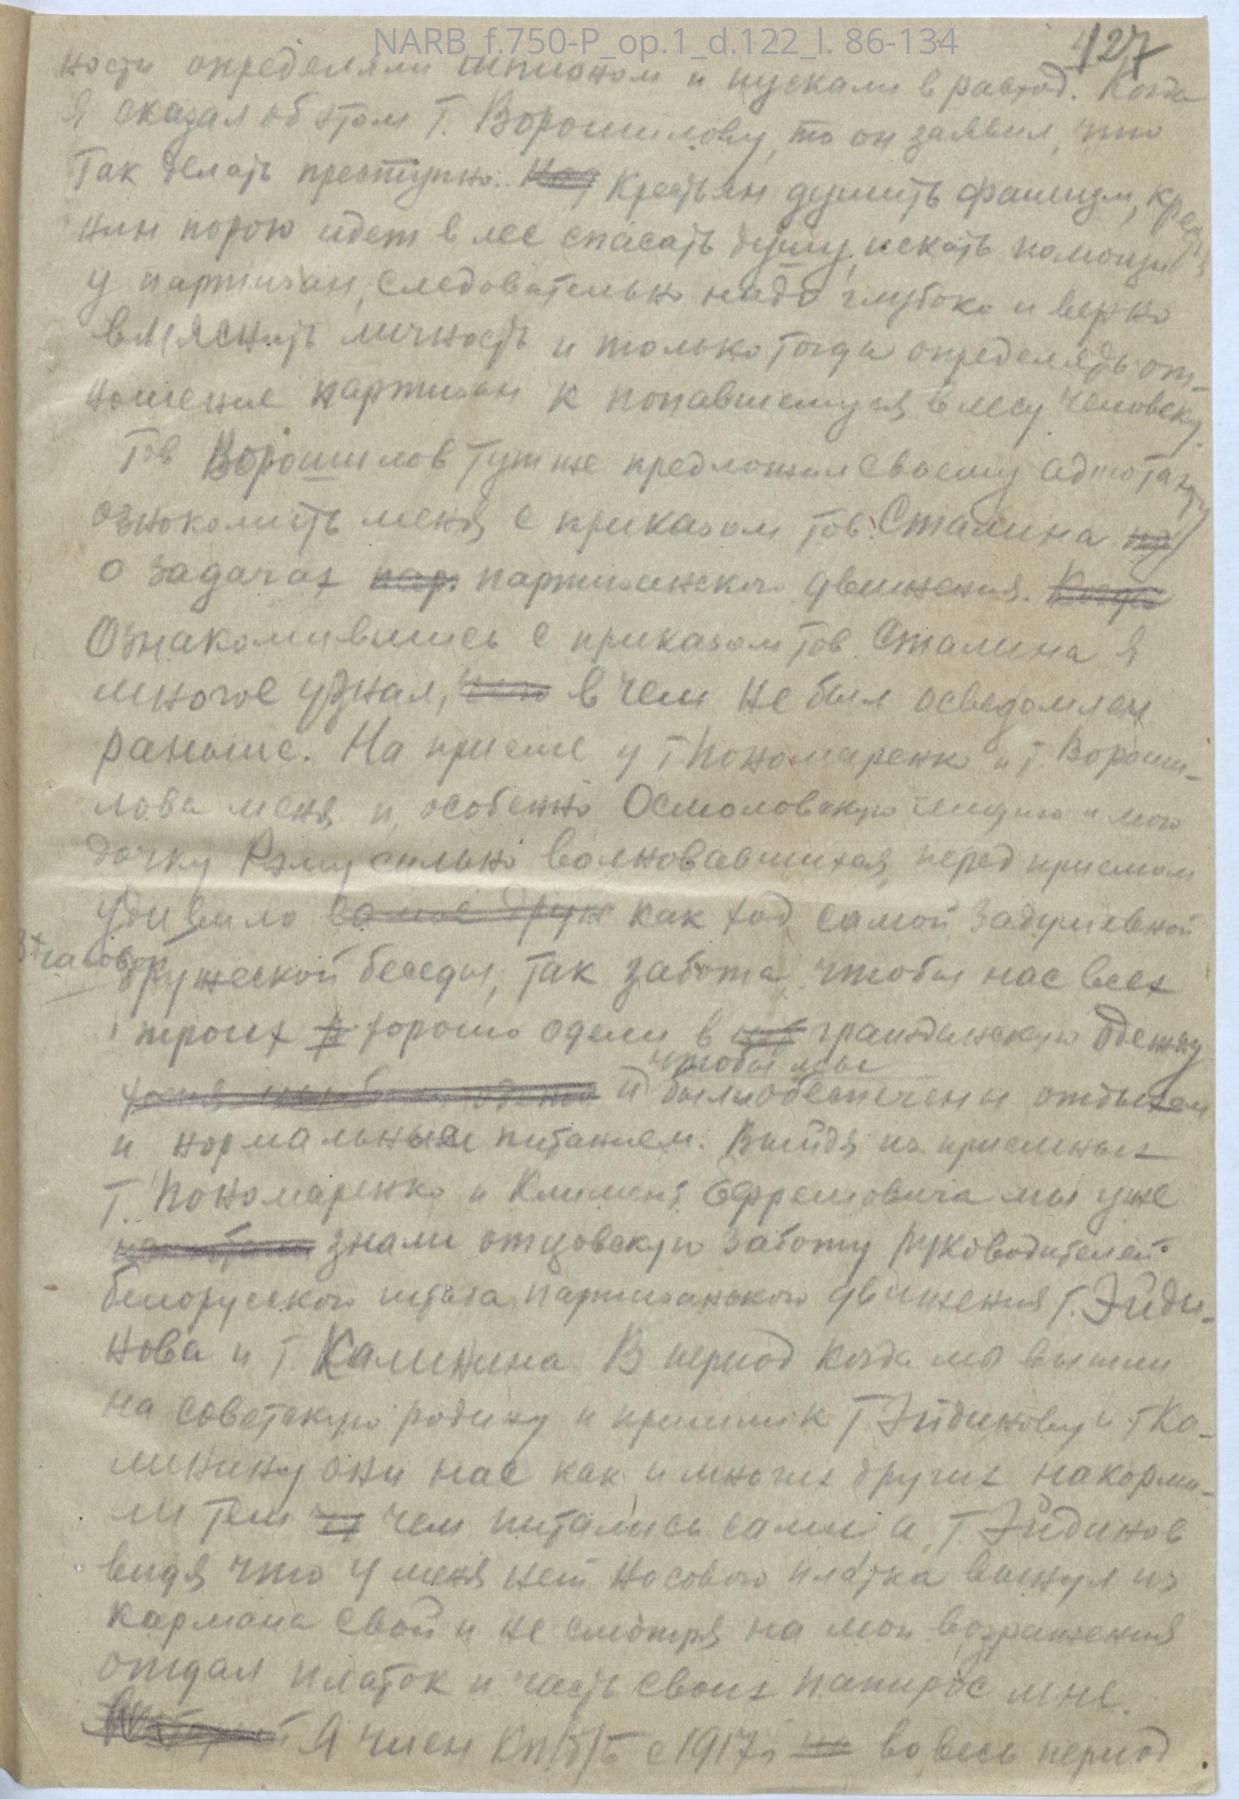 NARB_f.750-P_op.1_d.122_l. 86-134
127
ности определяли шпионом и пускали в расход. Когда
я сказал об этом т. Ворошилову, то он заявил, что
так делать преступно. Крестьян душить фашизм, кресть
нин порою идет в лес спасать душу, искать помощи
у партизан, следовательно надо глубоко и верно
выяснить личность и только тогда определять от-
ношение партизан к попавшемуся в лесу человеку.
Тов Ворошилов тут же предложил своему адьютанту
ознокомить меня с приказом тов. Сталина
о задачах пар. партизанского движения. Когда
Ознакомившись с приказом тов. Сталина я
многое узнал, в чем не был осведомлен
раньше. На приеме у т Пономаренко и т. Вороши-
лова меня и особенно Осмоловскую и мою
дочку Рэму сильно волновавшихся перед приемом
удивило самое друж как ход самой задушевной
разговор
дружеской беседы, так забота, чтобы нас всех
троих хорошо одели в гражданскую одежду
чтобы мы
и были обеспечены отдыхом
и нормальным питанием. Выйдя из приемных
т. Пономаренко и Климента Ефремовича мы уже
знали отцовскую заботу руководителей
белорусского штаба партизанского движения т. Эйди-
нова и т. Калинина. В период когда мы вышли
на советскую родину и пришли к т Эйдинову и т Ка-
линину они нас как и многих других накорми-
ли тем чем питались сами а т. Эйдинов
видя что у меня нет носового платка вынул из
кармана свой и не смотря на мои возражения
отдал платок и часть своих папирос мне.
Я член КП/б/Б с 1917г во весь период